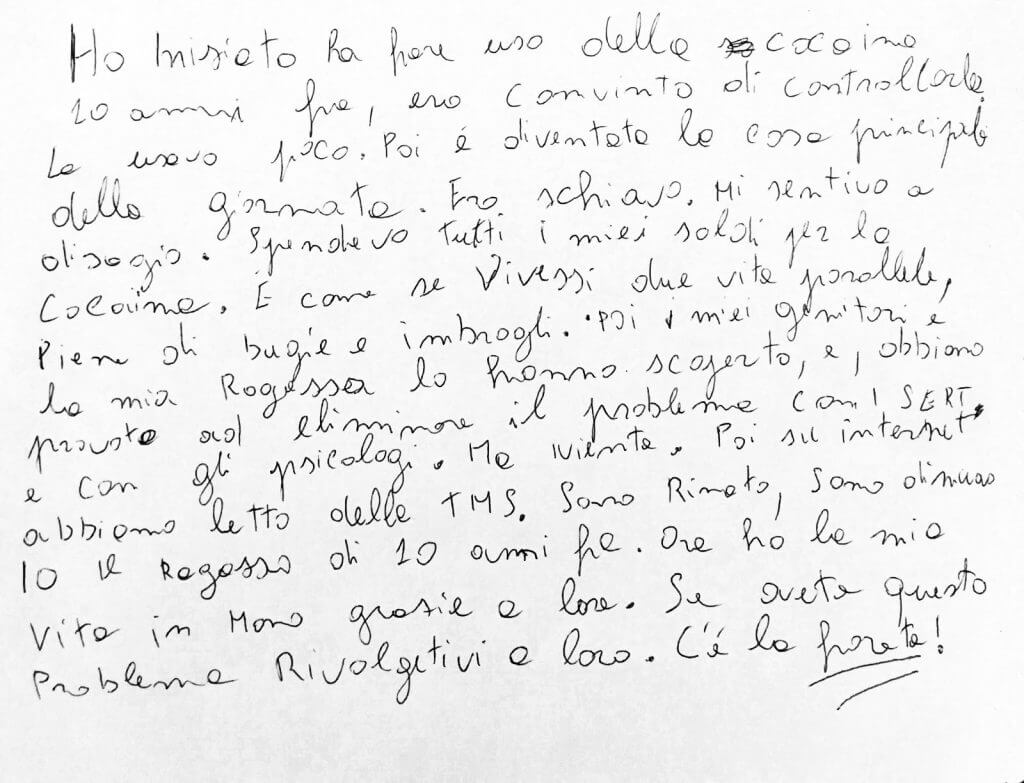 Ho Inisiato ha fare uso della cocaina
10 anni fa, ero convinto di controllarla.
La usavo poco. Poi é diventata la cosa principale
della giornata. Ero schiavo. Mi sentivo a
disagio. Spendevo tutti i miei soldi per la
Cocaina. E come se Vivessi due vite parallele,
Piene di bugie e imbrogli. Poi i miei genitori e
la mia Ragassa lo hanno scoperto, e, abbiamo
provato ad eliminare il problema con I SERT.
e con gli psicologi. Ma niente. Poi su internet
abbiamo letto della TMS. Sono Rinato, sono dinuovo
IO il Ragasso di 10 anni fa. Ora ho la mia
Vita in Mano grasie a loro. Se avete questo
Problema Rivolgetivi a loro. C'é la farete!